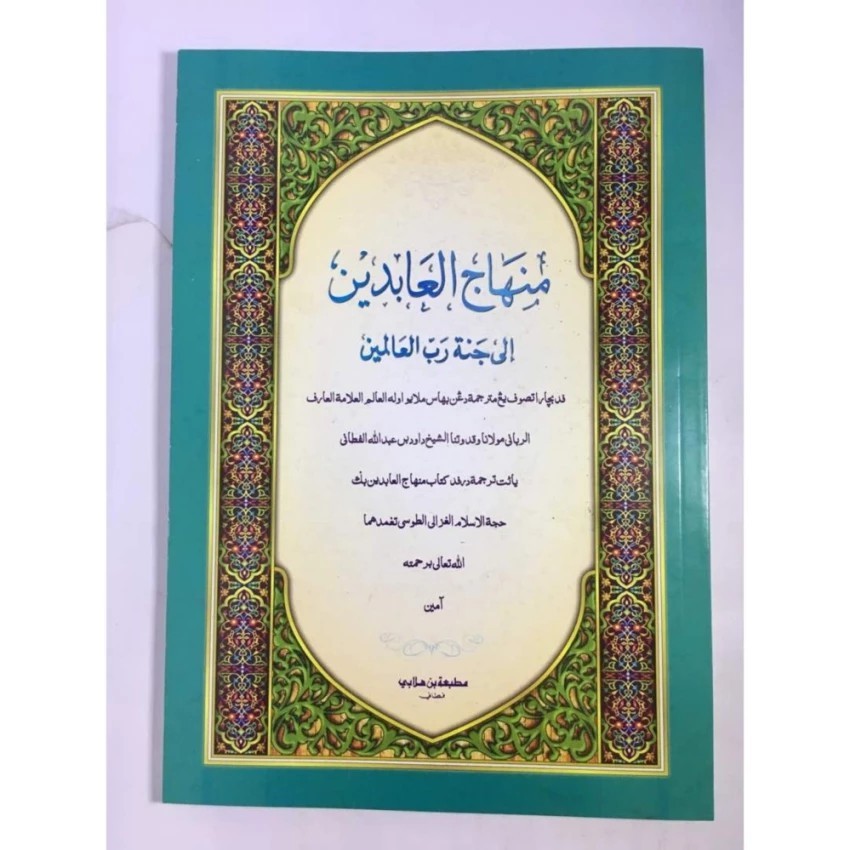 منهاج العابدين
إلى جنة رب العالمين
فد بچارا تصوف يڠ مترجمة دڠن بهاس ملايو اوله العالم العلامة العارف
الرباني مولانا وقدوتنا الشيخ داود بن عبد الله الفطاني
يائت ترجمة درفد كتاب منهاج العابدين بݢ
حجة الاسلام الغزالي الطوسي تغمدهما
الله تعالى برحمته
آمين
مطبعة بن هلابي
فطاني